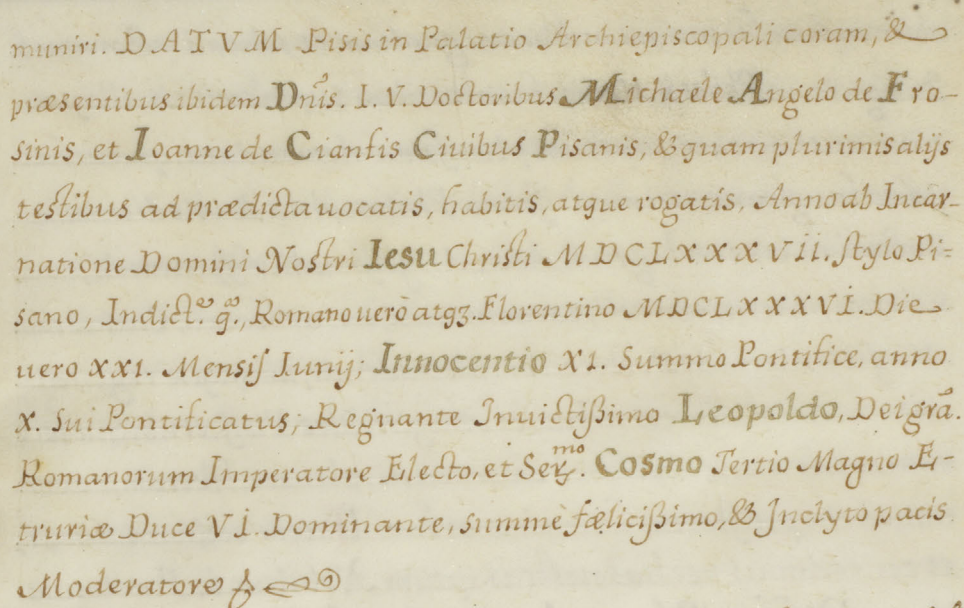 muniri. DATVM Pisis in Palatio Archiepiscopali coram, &
præsentibus ibidem Dn̄is. I. V. Doctoribus Michaele Angelo de Fro-
sinis, et Ioanne de Ciantis Ciuibus Pisanis, & quam plurimis alijs
testibus ad prædicta uocatis, habitis, atque rogatis. Anno ab Incar-
natione Domini Nostri Iesu Christi MDCLXXXVII. stylo Pi-
sano, Indict.e 9.a, Romano uerò atqȝ. Florentino MDCLXXXVI. Die
uero XXI. Mensis Iunij; Innocentio XI. Summo Pontifice, anno
X. sui Pontificatus; Regnante Inuictißimo Leopoldo, Dei grā.
Romanorum Imperatore Electo, et Ser.mo Cosmo Tertio Magno E-
truriæ Duce VI. Dominante, summè fælicißimo, & Inclyto pacis
Moderatore